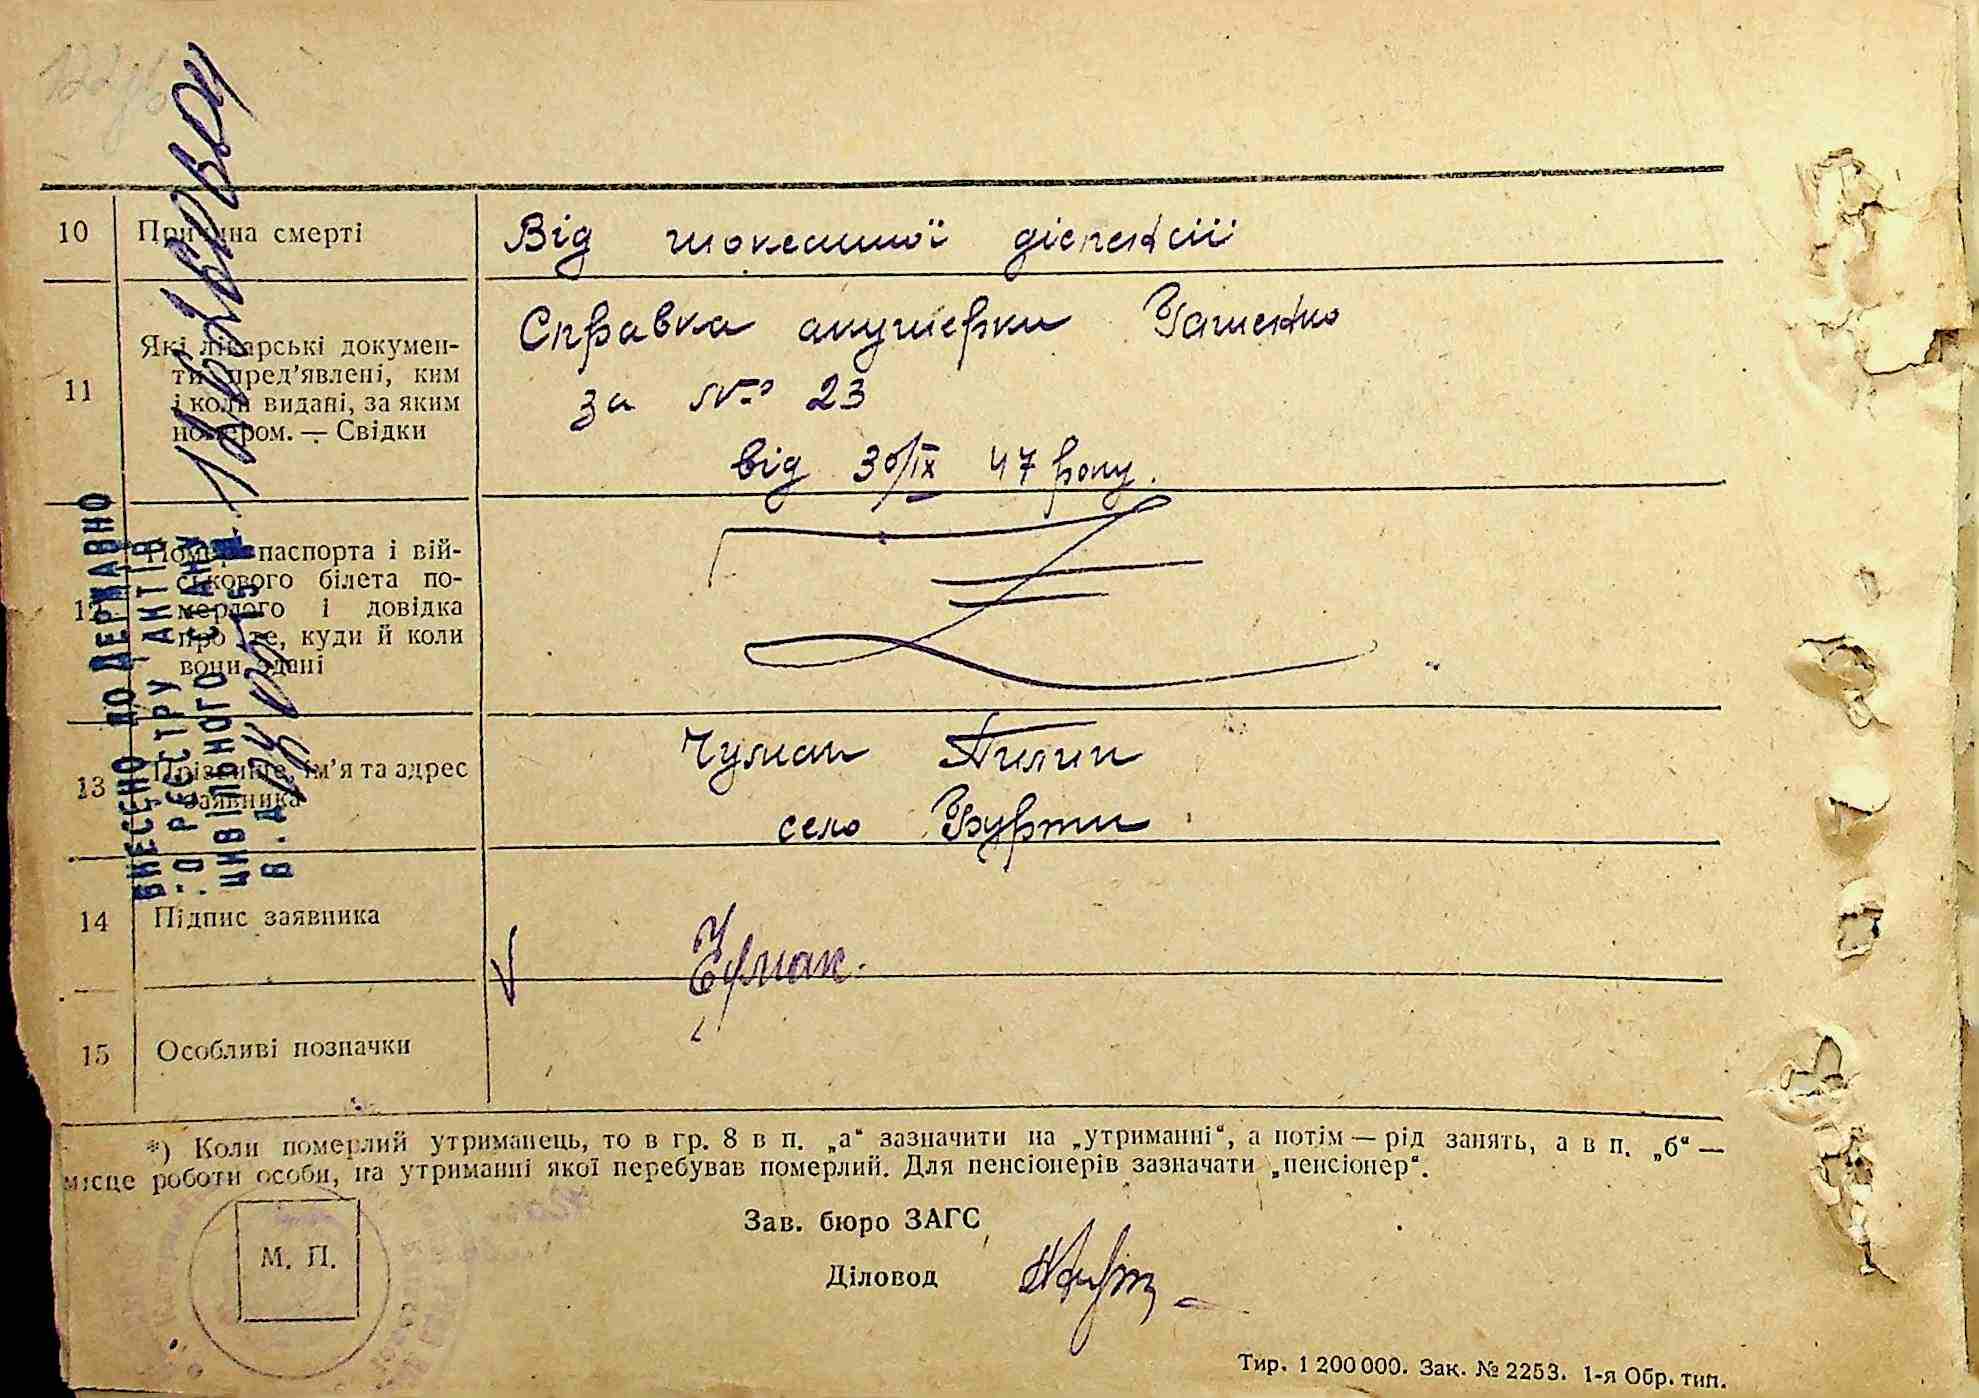 10 Причина смерті
Від токсичної діспепсіії
11 Які лікарські докумен-
ти пред’явлені, ким
і коли видані, за яким
номером. — Свідки
Справка акушерки
за № 23
від 30/IX 47 року.
12 Номер паспорта і вій-
ськового білета по-
мерлого і довідка
про те, куди й коли
вони здані
13 Прізвище, ім’я та адрес
заявника
Чумак Пилип
село Бурти
14 Підпис заявника
Чумак.
15 Особливі позначки
*) Коли померлий утриманець, то в гр. 8 в п. „а“ зазначити на „утриманні“, а потім — рід занять, а в п. „б“ —
місце роботи особи, на утриманні якої перебував померлий. Для пенсіонерів зазначати „пенсіонер“.
Зав. бюро ЗАГС
М. П.
Діловод
Тир. 1 200 000. Зак. № 2253. 1-я Обр. тип.
ВНЕСЕНО ДО ДЕРЖАВНО
ГО РЕЄСТРУ АКТІВ
ЦИВІЛЬНОГО СТАНУ